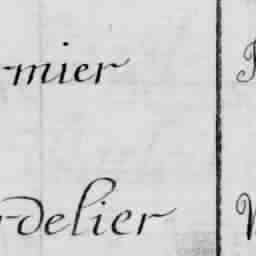 -mier
-delier